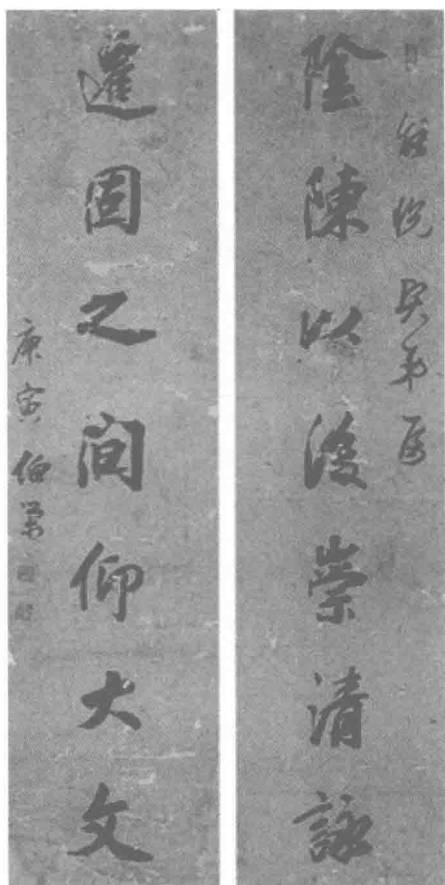 弟屬
陰陳以後崇清詠
遷固之間仰大文
庚寅伯